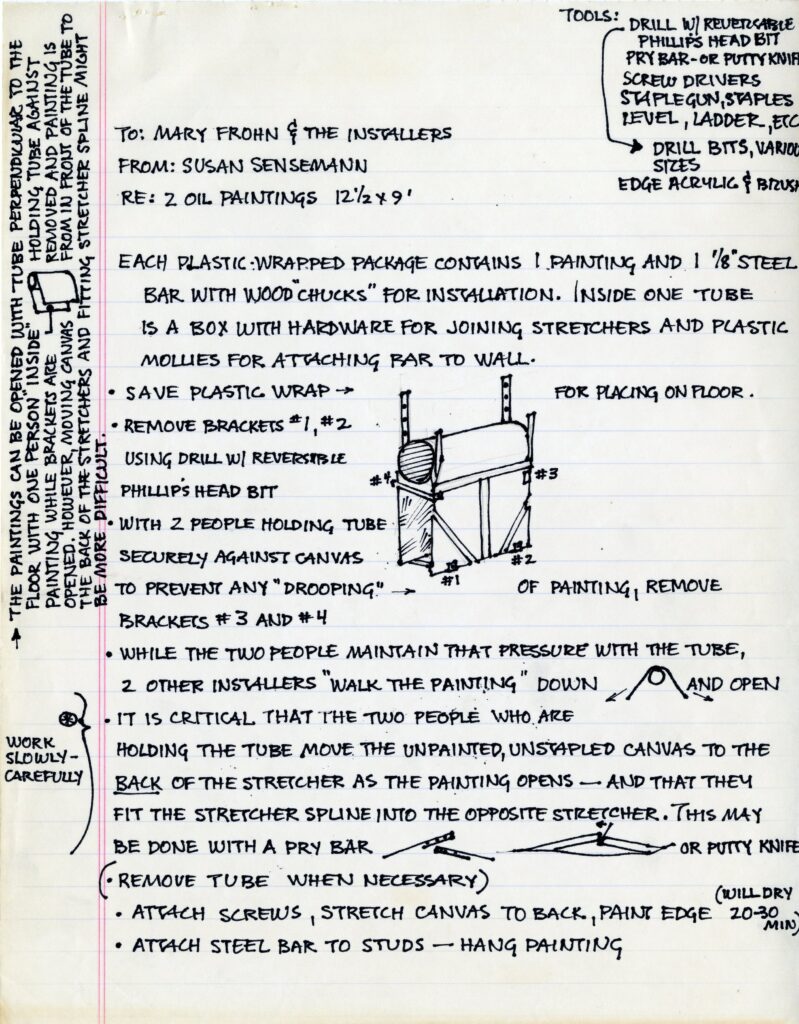 TOOLS: DRILL W/ REVERSABLE
PHILLIPS HEAD BIT
PRY BAR - OR PUTTY KNIF
SCREW DRIVERS
STAPLEGUN, STAPLES
LEVEL, LADDER, ETC
DRILL BITS, VARIOU
SIZES
EDGE ACRYLIC & BRUSH
TO: MARY FROHN & THE INSTALLERS
FROM: SUSAN SENSEMANN
RE: 2 OIL PAINTINGS 12 1/2 X 9'
EACH PLASTIC-WRAPPED PACKAGE CONTAINS 1 PAINTING AND 1 1/8" STEEL
BAR WITH WOOD "CHUCKS" FOR INSTALLATION. INSIDE ONE TUBE
IS A BOX WITH HARDWARE FOR JOINING STRETCHERS AND PLASTIC
MOLLIES FOR ATTACHING BAR TO WALL.
• SAVE PLASTIC WRAP → FOR PLACING ON FLOOR.
• REMOVE BRACKETS #1, #2
USING DRILL W/ REVERSIBLE
PHILLIP'S HEAD BIT
#4
#3
#1
#2
• WITH 2 PEOPLE HOLDING TUBE
SECURELY AGAINST CANVAS
TO PREVENT ANY "DROOPING" → OF PAINTING, REMOVE
BRACKETS #3 AND #4
• WHILE THE TWO PEOPLE MAINTAIN THAT PRESSURE WITH THE TUBE,
2 OTHER INSTALLERS "WALK THE PAINTING" DOWN AND OPEN
• IT IS CRITICAL THAT THE TWO PEOPLE WHO ARE
HOLDING THE TUBE MOVE THE UNPAINTED, UNSTAPLED CANVAS TO THE
BACK OF THE STRETCHER AS THE PAINTING OPENS — AND THAT THEY
FIT THE STRETCHER SPLINE INTO THE OPPOSITE STRETCHER. THIS MAY
BE DONE WITH A PRY BAR OR PUTTY KNIFE
(• REMOVE TUBE WHEN NECESSARY)
• ATTACH SCREWS, STRETCH CANVAS TO BACK, PAINT EDGE (WILL DRY
20-30
MIN)
• ATTACH STEEL BAR TO STUDS — HANG PAINTING
⊛ WORK
SLOWLY -
CAREFULLY
→ THE PAINTINGS CAN BE OPENED WITH TUBE PERPENDICULAR TO THE
FLOOR WITH ONE PERSON "INSIDE" HOLDING TUBE AGAINST
PAINTING WHILE BRACKETS ARE REMOVED AND PAINTING IS
OPENED. HOWEVER, MOVING CANVAS FROM IN FRONT OF THE TUBE TO
THE BACK OF THE STRETCHERS AND FITTING STRETCHER SPLINE MIGHT
BE MORE DIFFICULT.